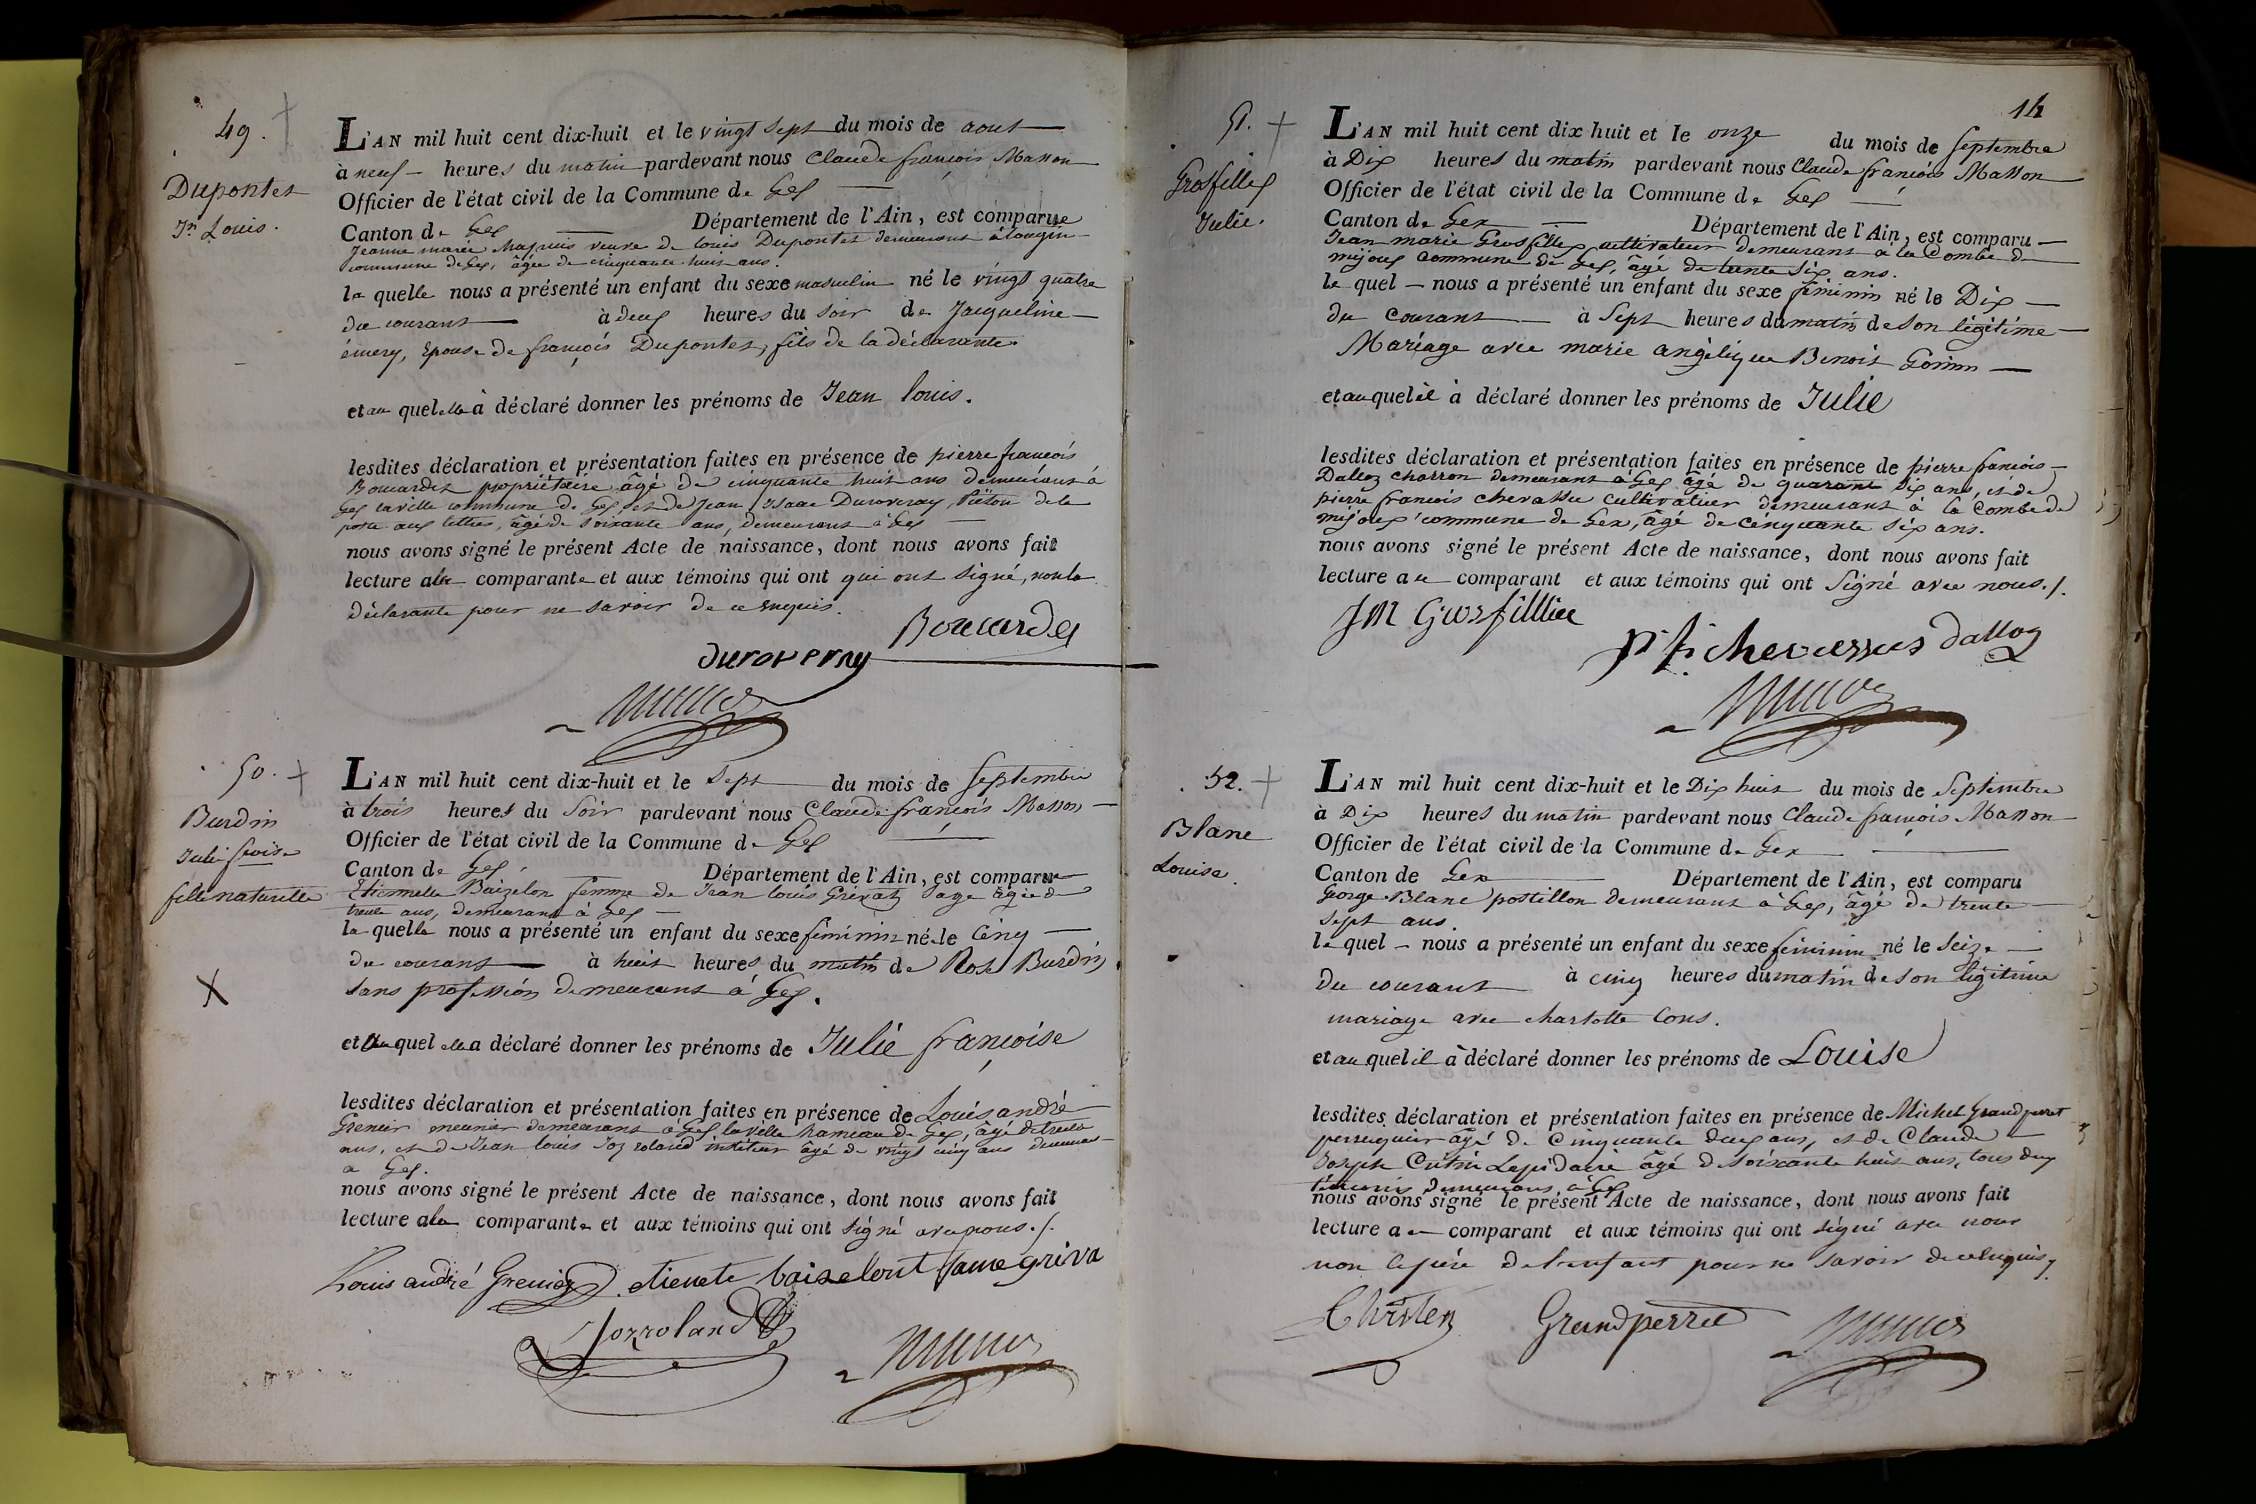 49.
Dupontet
Jn Louis.
L'AN mil huit cent dix-huit et le vingt sept du mois de aout
à neuf heures du matin pardevant nous Claude françois Masson
Officier de l'état civil de la Commune de Gex
Canton de Gex Département de l'Ain, est comparue
Jeanne marie veuve de louis Dupontet demeurant à
commune de Gex, âgée de cinquante huit ans.
la quelle nous a présenté un enfant du sexe masculin né le vingt quatre
du courant à deux heures du soir de Jacqueline
émery, Epouse de françois Dupontet, fils de la déclarante.
et au quel elle à déclaré donner les prénoms de Jean louis.
lesdites déclaration et présentation faites en présence de pierre françois
Boucardet propriétaire âgé de cinquante huit ans demeurant à
Gex la ville commune de Gex et de Jean Isaac Duroveray, Piéton de la
poste aux lettres, âgé de soixante ans, demeurant à Gex
nous avons signé le présent Acte de naissance, dont nous avons fait
lecture a la comparante et aux témoins qui ont qui ont signé, non la
déclarante pour ne savoir de ce enquis.
Boucardet
duroveray
50.
Burdin
Julie foise
fille naturelle
L'AN mil huit cent dix-huit et le sept du mois de Septembre
à trois heures du Soir pardevant nous Claude françois Masson
Officier de l'état civil de la Commune de Gex
Canton de Gex Département de l'Ain, est comparue
Etiennette Baizelon femme de Jean louis Grivat Sage âgée de
trente ans, demeurant à Gex
la quelle nous a présenté un enfant du sexe féminin né le Cinq
du courant à huit heures du matin de Rose Burdin
sans profession demeurant à Gex.
et au quel elle a déclaré donner les prénoms de Julie françoise
lesdites déclaration et présentation faites en présence de Louis andré
Grenier meunier demeurant à Gex la ville hameau de Gex, âgé de trente
ans, et de Jean louis Joz roland instituteur âgé de vingt cinq ans demeurant
à Gex.
nous avons signé le présent Acte de naissance, dont nous avons fait
lecture a la comparante et aux témoins qui ont signé avec nous./.
Louis andré Grenier etienete baizelont fame griva
Jozroland
14
51.
Grosfillex
Julie.
L'AN mil huit cent dix huit et le onze du mois de Septembre
à Dix heures du matin pardevant nous Claude françois Masson
Officier de l'état civil de la Commune de Gex
Canton de Gex Département de l'Ain, est comparu
Jean marie Grosfillex cultivateur demeurant à la Combe de
mijoux commune de Gex, âgé de trente six ans.
le quel nous a présenté un enfant du sexe féminin né le Dix
du Courant à Sept heures du matin de son légitime
Mariage avec marie angélique Benoit Gonin
et au quel il à déclaré donner les prénoms de Julie
lesdites déclaration et présentation faites en présence de pierre françois
Dalloz charron demeurant à Gex âgé de quarante six ans, et de
pierre françois chevassu Cultivateur demeurant à la Combe de
mijoux commune de Gex, âgé de cinquante six ans.
nous avons signé le présent Acte de naissance, dont nous avons fait
lecture au comparant et aux témoins qui ont Signé avec nous./.
JM Grosfillex
p. f. chevassus dalloz
52.
Blanc
Louise.
L'AN mil huit cent dix-huit et le Dix huit du mois de Septembre
à Dix heures du matin pardevant nous Claude françois Masson
Officier de l'état civil de la Commune de Gex
Canton de Gex Département de l'Ain, est comparu
George Blanc postillon demeurant à Gex, âgé de trente
sept ans.
le quel nous a présenté un enfant du sexe féminin né le Seize
du courant à cinq heures du matin de son légitime
mariage avec charlotte Cons.
et au quel il à déclaré donner les prénoms de Louise
lesdites déclaration et présentation faites en présence de Michel Grandperret
perruquier âgé de Cinquante deux ans, et de Claude
Joseph Lapidaire âgé de soixante huit ans, tous deux
témoins demeurans à Gex
nous avons signé le présent Acte de naissance, dont nous avons fait
lecture au comparant et aux témoins qui ont signé avec nous
non le père de l'enfant pour ne savoir de ce enquis.
Grandperret